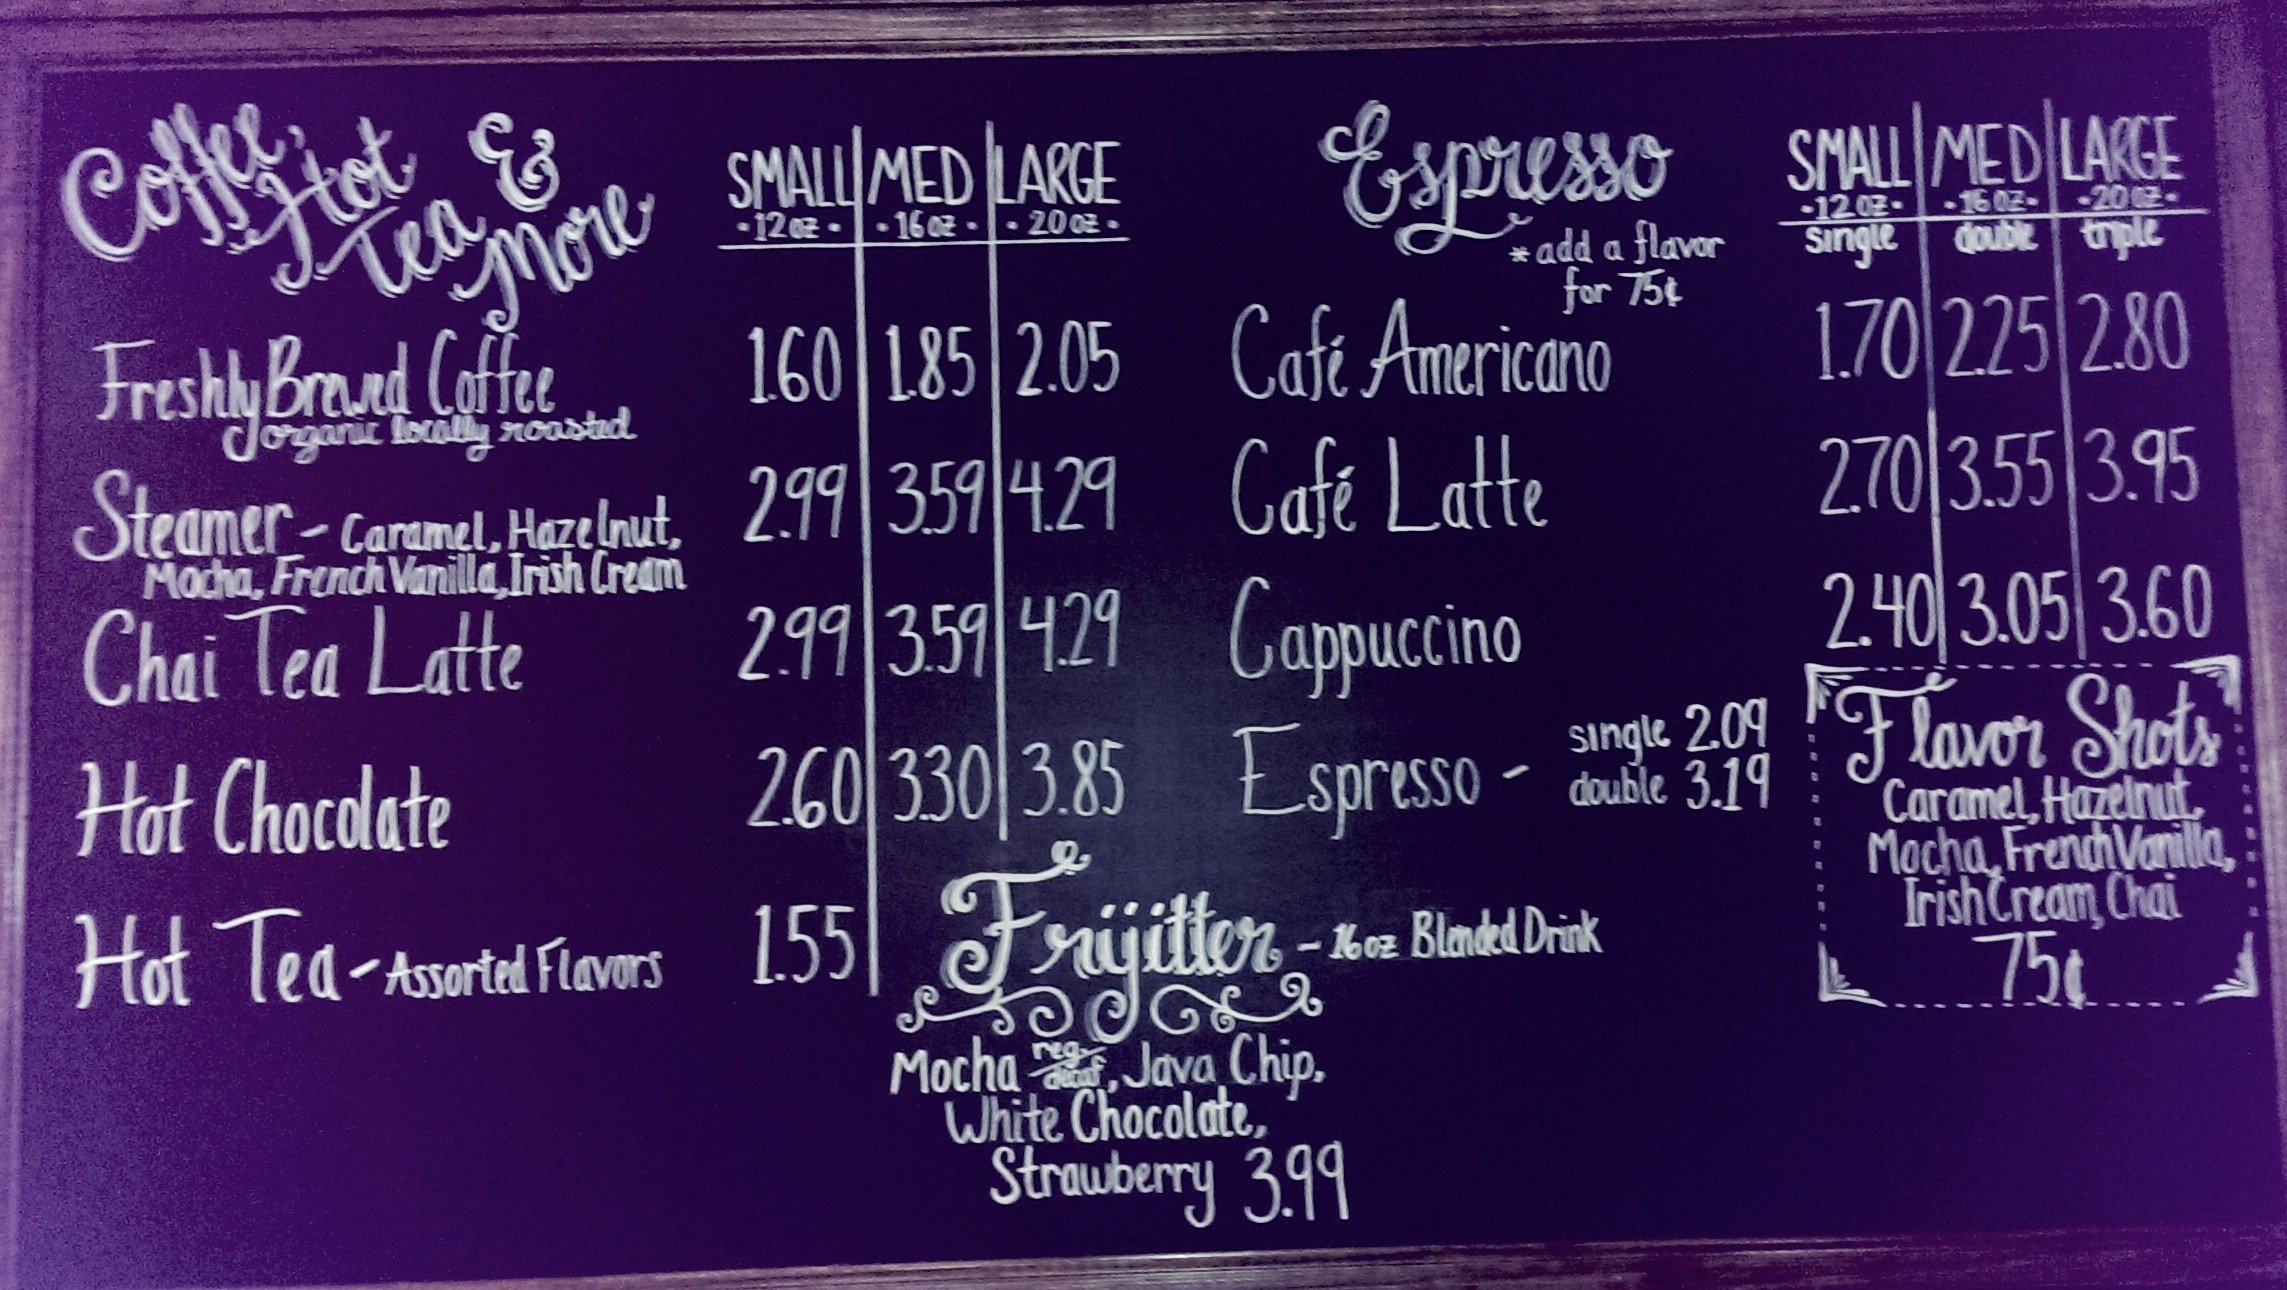 Coffee, Hot Tea & More
SMALL MED LARGE
·12oz· ·16oz· ·20oz·
Freshly Brewed Coffee 1.60 1.85 2.05
organic locally roasted
Steamer - Caramel, Hazelnut, 2.99 3.59 4.29
Mocha, French Vanilla, Irish Cream
Chai Tea Latte 2.99 3.59 4.29
Hot Chocolate 2.60 3.30 3.85
Hot Tea - Assorted Flavors 1.55
Espresso
*add a flavor
for 75¢
SMALL MED LARGE
·12oz· ·16oz· ·20oz·
single double triple
Café Americano 1.70 2.25 2.80
Café Latte 2.70 3.55 3.95
Cappuccino 2.40 3.05 3.60
Espresso - single 2.09
double 3.19
Flavor Shots
Caramel, Hazelnut,
Mocha, French Vanilla,
Irish Cream, Chai
75¢
Frijitter - 16oz Blended Drink
Mocha reg/decaf, Java Chip,
White Chocolate,
Strawberry 3.99